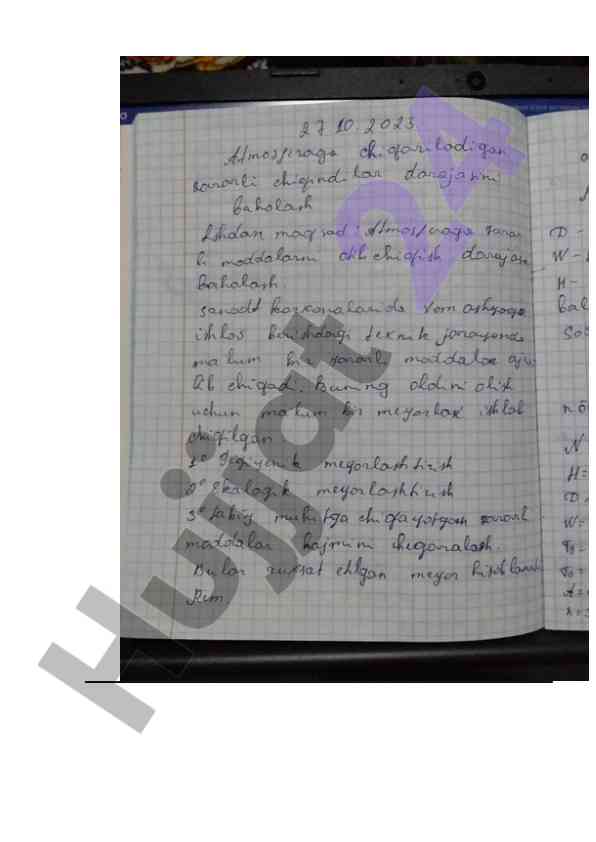 27.10.2023.
Atmosferaga chiqariladigan
zararli chiqindilar darajasini
baholash
Ishdan maqsad: Atmosferaga zarar
li moddalarni otib chiqish darajasi
D -
W -
baholash.
H -
sanoat korxonalarida xom ashyoga
bal
ishlov berishdagi texnik jarayonda
So
malum bir zararli moddalar ajra
lib chiqadi. Buning oldini olish
uchun malum bir meyorlar ishlab
chiqilgan
N
1° Gigiyenik meyorlashtirish
H=
2° Ekalogik meyorlashtirish
D
3° tabiiy muhitga chiqayotgan zararli
W=
moddalar hajmini chegaralash.
Bular ruxsat etilgan meyor hisoblanadi
A=
Rem
Hujjat 24